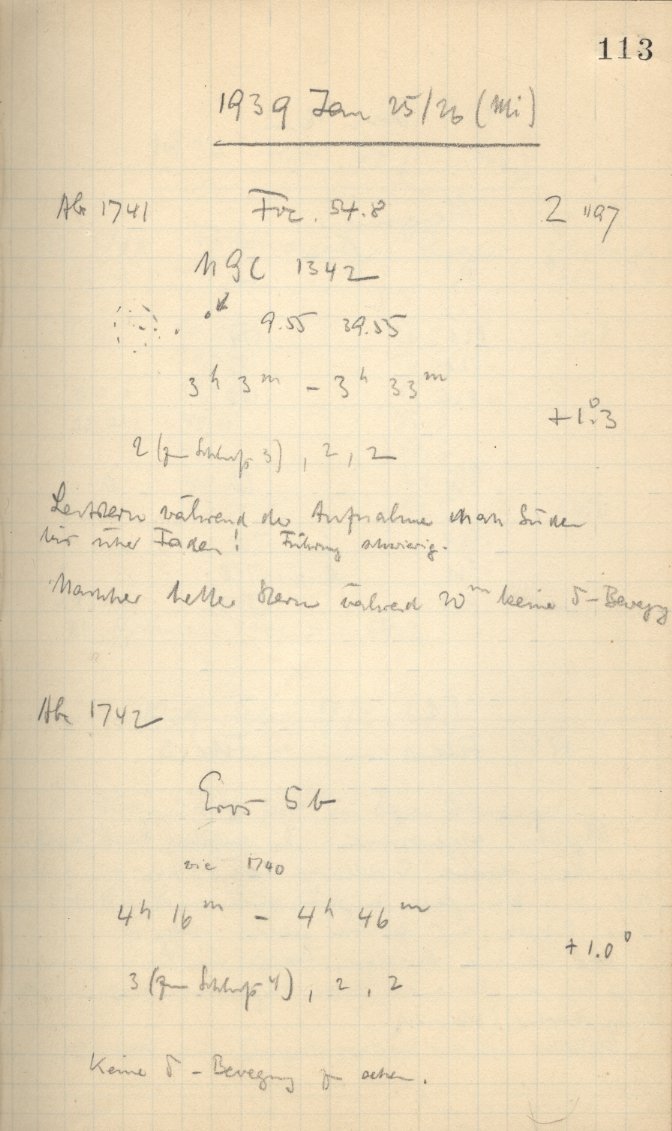 113
1939 Jan 25/26 (Mi)
Ab 1741 Foc. 54.8 2 "97
NGC 1342
9.55 39.55
3h 3m - 3h 33m
+1.°3
2 (zum Schluß 3), 2, 2
Leitstern während der Aufnahme nach Süden
bis über Faden! Führung schwierig.
heller Stern während 20m keine δ-Bewegg
Ab 1742
Eros 5b
wie 1740
4h 16m - 4h 46m
+1.0°
3 (zum Schluß 4), 2, 2
Keine δ-Bewegung zu sehen.